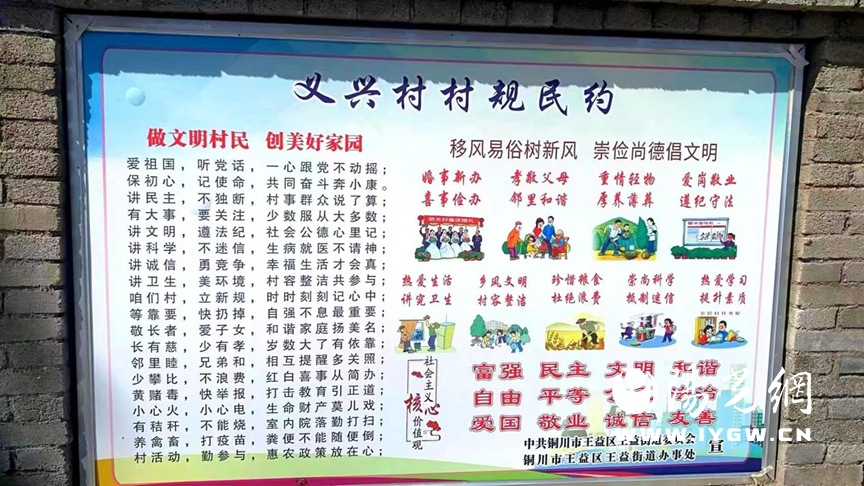 义兴村村规民约
做文明村民 创美好家园
爱祖国，听党话，一心跟党不动摇；
保初心，记使命，共同奋斗奔小康。
讲民主，不独断，村事群众说了算；
有大事，要关注，少数服从大多数；
讲文明，遵法纪，社会公德心里记；
讲科学，不迷信，生病就医不请神；
讲诚信，勇竞争，幸福生活才会真；
讲卫生，美环境，村容整洁共参与；
咱们村，立新规，时时刻刻记心中；
等靠要，快扔掉，自强不息最重要；
敬长者，爱子女，和谐家庭扬美名；
长有慈，少有孝，岁数大了有依靠；
邻里睦，兄弟和，相互提醒多关照；
少攀比，不浪费，红白喜事从简办；
黄赌毒，快举报，打击教育引正道；
小心火，小心电，生命财产莫儿戏；
有秸秆，不能烧，室内院落勤打扫；
养禽畜，打疫苗，粪便不能随便倒；
村活动，勤参与，惠农政策放在心；
移风易俗树新风 崇俭尚德倡文明
婚事新办 孝敬父母 重情轻物 爱岗敬业
喜事俭办 邻里和谐 厚养薄葬 遵纪守法
热爱生活 乡风文明 珍惜粮食 崇尚科学 热爱学习
讲究卫生 村容整洁 杜绝浪费 抵制迷信 提升素质
社会主义
核心
价值观
富强 民主 文明 和谐
自由 平等
爱国 敬业 诚信 友善
中共铜川市王益区王益街道
铜川市王益区王益街道办事处
宣
网
WWW.IYGW.CN